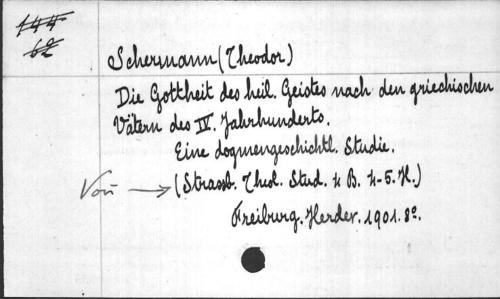 144
62
Schermann (Theodor)
Die Gottheit des heil. Geistes nach den griechischen
Vätern des IV. Jahrhunderts.
Eine dogmengeschichtl. Studie.
(Strassb. Theol. Stud. 4 B. 4-5. H.)
Freiburg. Herder. 1901. 8º.